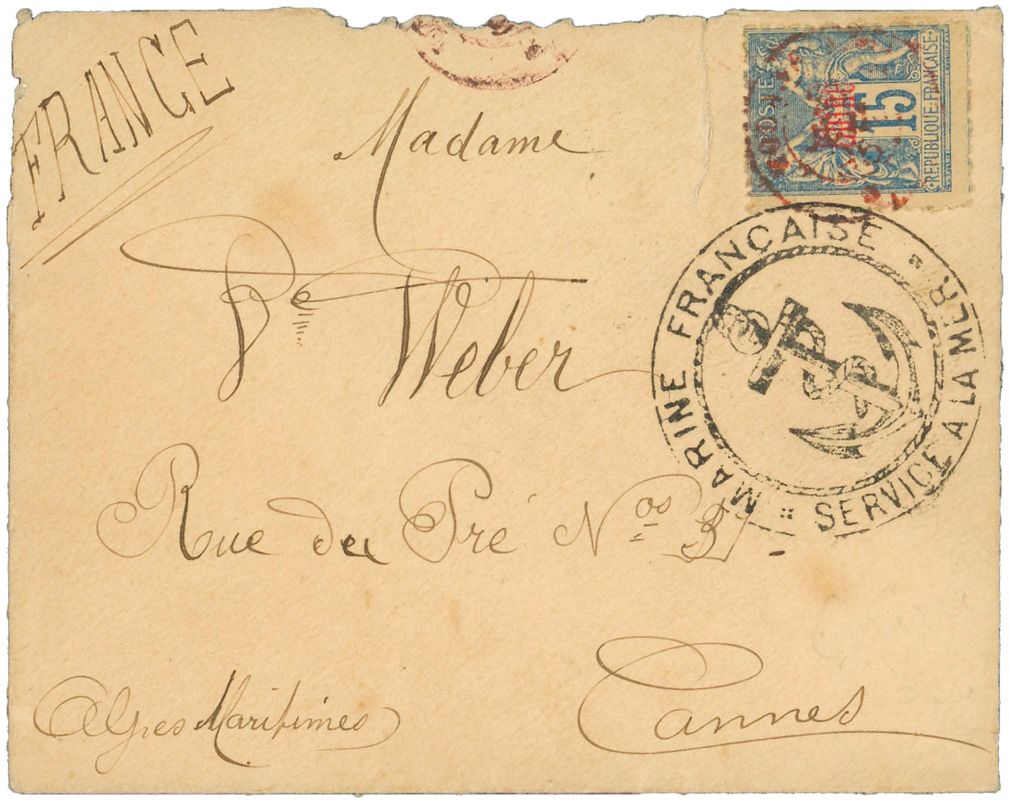 FRANCE
POSTES
Chine
15
REPUBLIQUE FRANÇAISE
Madame
Vve Weber
Rue du Pré Nos 3
Cannes
Alpes Maritimes
MARINE FRANÇAISE
SERVICE A LA MER